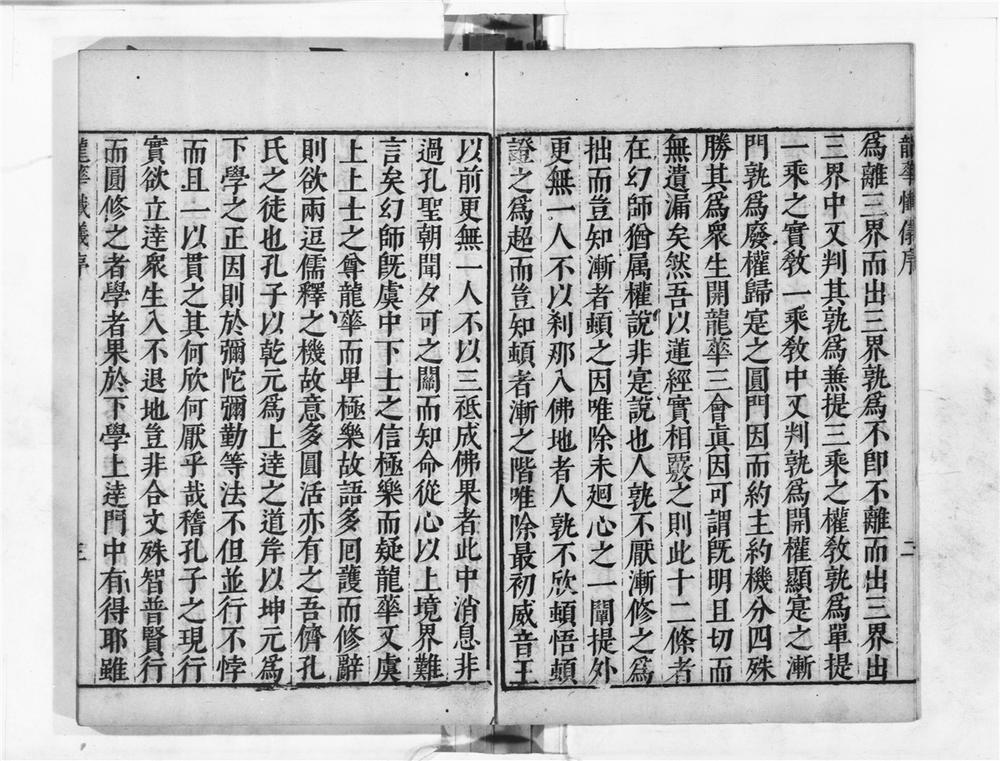 龍華懺儀序
二
爲離三界而出三界孰爲不卽不離而出三界出
三界中又判其孰爲兼提三乘之權敎孰爲單提
一乘之實敎一乘敎中又判孰爲開權顯寔之漸
門孰爲廢權歸寔之圓門因而約主約機分四殊
勝其爲衆生開龍華三會眞因可謂旣明且切而
無遺漏矣然吾以蓮經實相覈之則此十二條者
在幻師猶属權說非寔說也人孰不厭漸修之爲
拙而豈知漸者頓之因唯除未廻心之一闡提外
更無一人不以刹那入佛地者人孰不欣頓悟頓
證之爲超而豈知頓者漸之階唯除最初威音王
以前更無一人不以三祇成佛果者此中消息非
過孔聖朝聞夕可之關而知命從心以上境界難
言矣幻師旣虞中下士之信極樂而疑龍華又虞
上上士之尊龍華而𤰞極樂故語多囘護而修辭
則欲兩逗儒釋之機故意多圓活亦有之吾儕孔
氏之徒也孔子以乾元爲上逹之道岸以坤元爲
下學之正因則於彌陀彌勒等法不但並行不悖
而且一以貫之其何欣何厭乎哉稽孔子之現行
實欲立逹衆生入不退地豈非合文殊智普賢行
而圓修之者學者果於下學上逹門中有得耶雖
龍華懺儀序
三